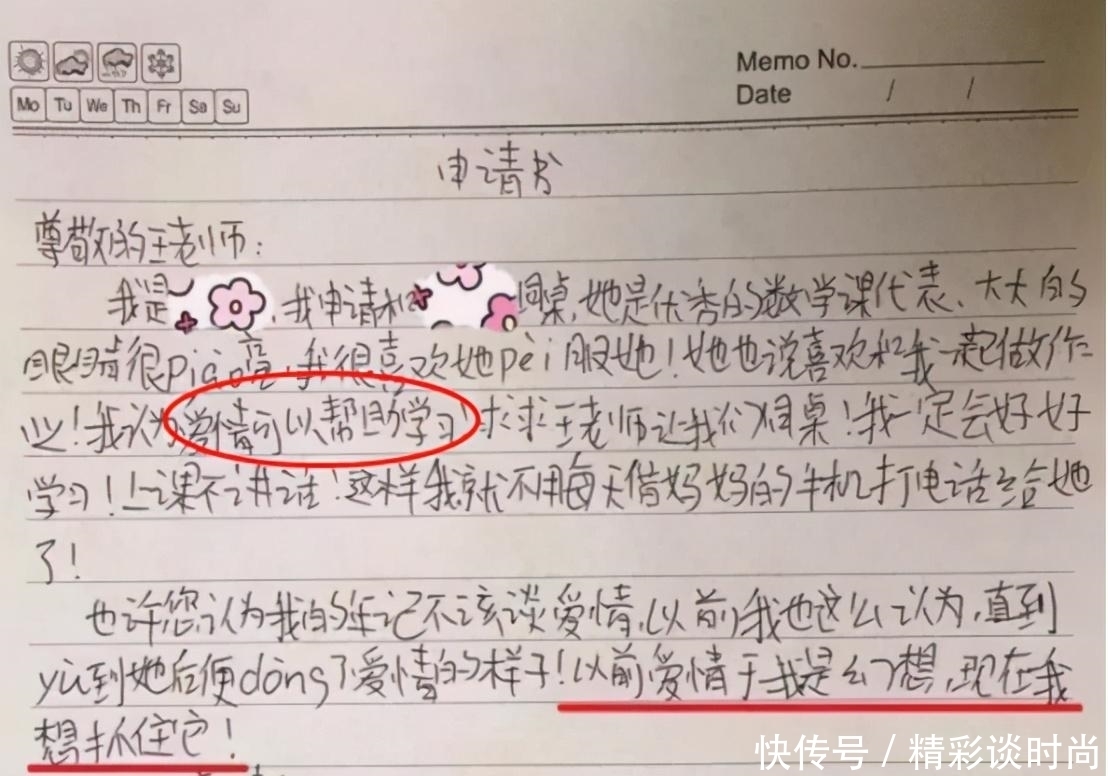 Memo No.
Date / /
Mo Tu We Th Fr Sa Su
申请书
尊敬的王老师：
我是，我申请和同桌，她是优秀的数学课代表、大大的
眼睛很piào亮，我很喜欢她pèi服她！她也说喜欢和我一起做作
业！我认为爱情可以帮助学习！求求王老师让我们同桌！我一定会好好
学习！上课不讲话！这样我就不用每天借妈妈的手机打电话给她
了！
也许您认为我的年记不该谈爱情，以前我也这么认为，直到
yù到她后便dǒng了爱情的样子！以前爱情于我是幻想，现在我
想抓住它！
快传号 / 精彩谈时尚